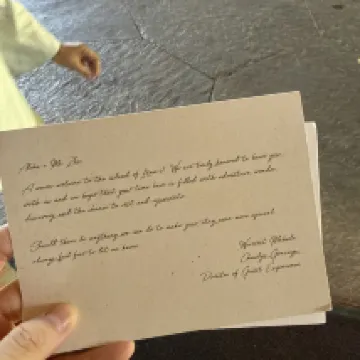 Aloha + Ms. Zhao
A warm welcome to the island of Hawai'i! We are truly honored to have you
with us and we hope that your time here is filled with adventure, wonder,
discovery, and the chance to rest and rejuvenate.
Should there be anything we can do to make your stay even more special
always feel free to let us know.
Warmest Mahalo
Director of Guest Experience